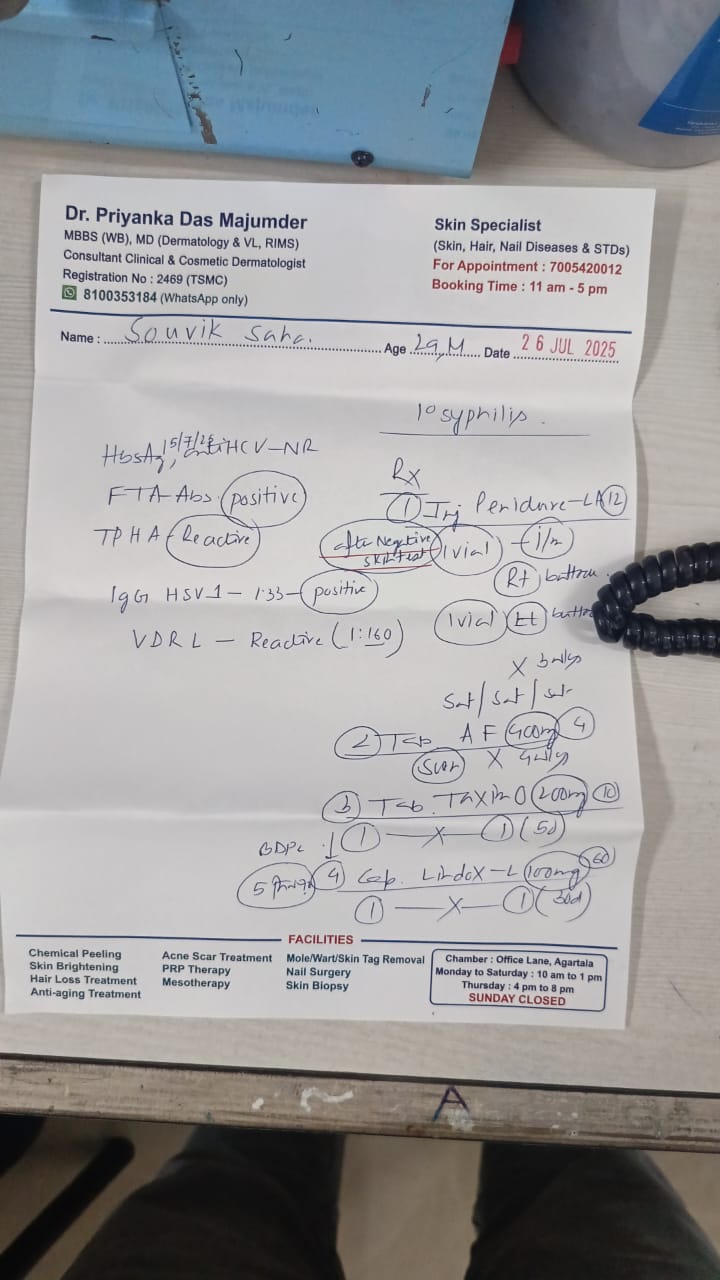 Dr. Priyanka Das Majumder
MBBS (WB), MD (Dermatology & VL, RIMS)
Consultant Clinical & Cosmetic Dermatologist
Registration No : 2469 (TSMC)
8100353184 (WhatsApp only)
Skin Specialist
(Skin, Hair, Nail Diseases & STDs)
For Appointment : 7005420012
Booking Time : 11 am - 5 pm
Name : Souvik Saha. Age 29, M Date 26 JUL 2025
1° syphilis.
HbsAg, HCV-NR
FTA-Abs. positive
TPHA - Reactive
IgG HSV1 - 1.33 - positive
VDRL - Reactive (1:160)
Rx
① Inj Penidure-LA 12
after Negative
skin test
1 vial - i/m
Rt buttock.
1 vial Lt
X 3 wkly
Sat / Sat / Sat
② Tab AF 400mg 4
X 4 wkly
③ Tab. Taxim O 200mg 10
① — X — ① (5d)
④ Cap. -L 100mg 60
① — X — ① (30d)
FACILITIES
Chemical Peeling
Skin Brightening
Hair Loss Treatment
Anti-aging Treatment
Acne Scar Treatment
PRP Therapy
Mesotherapy
Mole/Wart/Skin Tag Removal
Nail Surgery
Skin Biopsy
Chamber : Office Lane, Agartala
Monday to Saturday : 10 am to 1 pm
Thursday : 4 pm to 8 pm
SUNDAY CLOSED
A